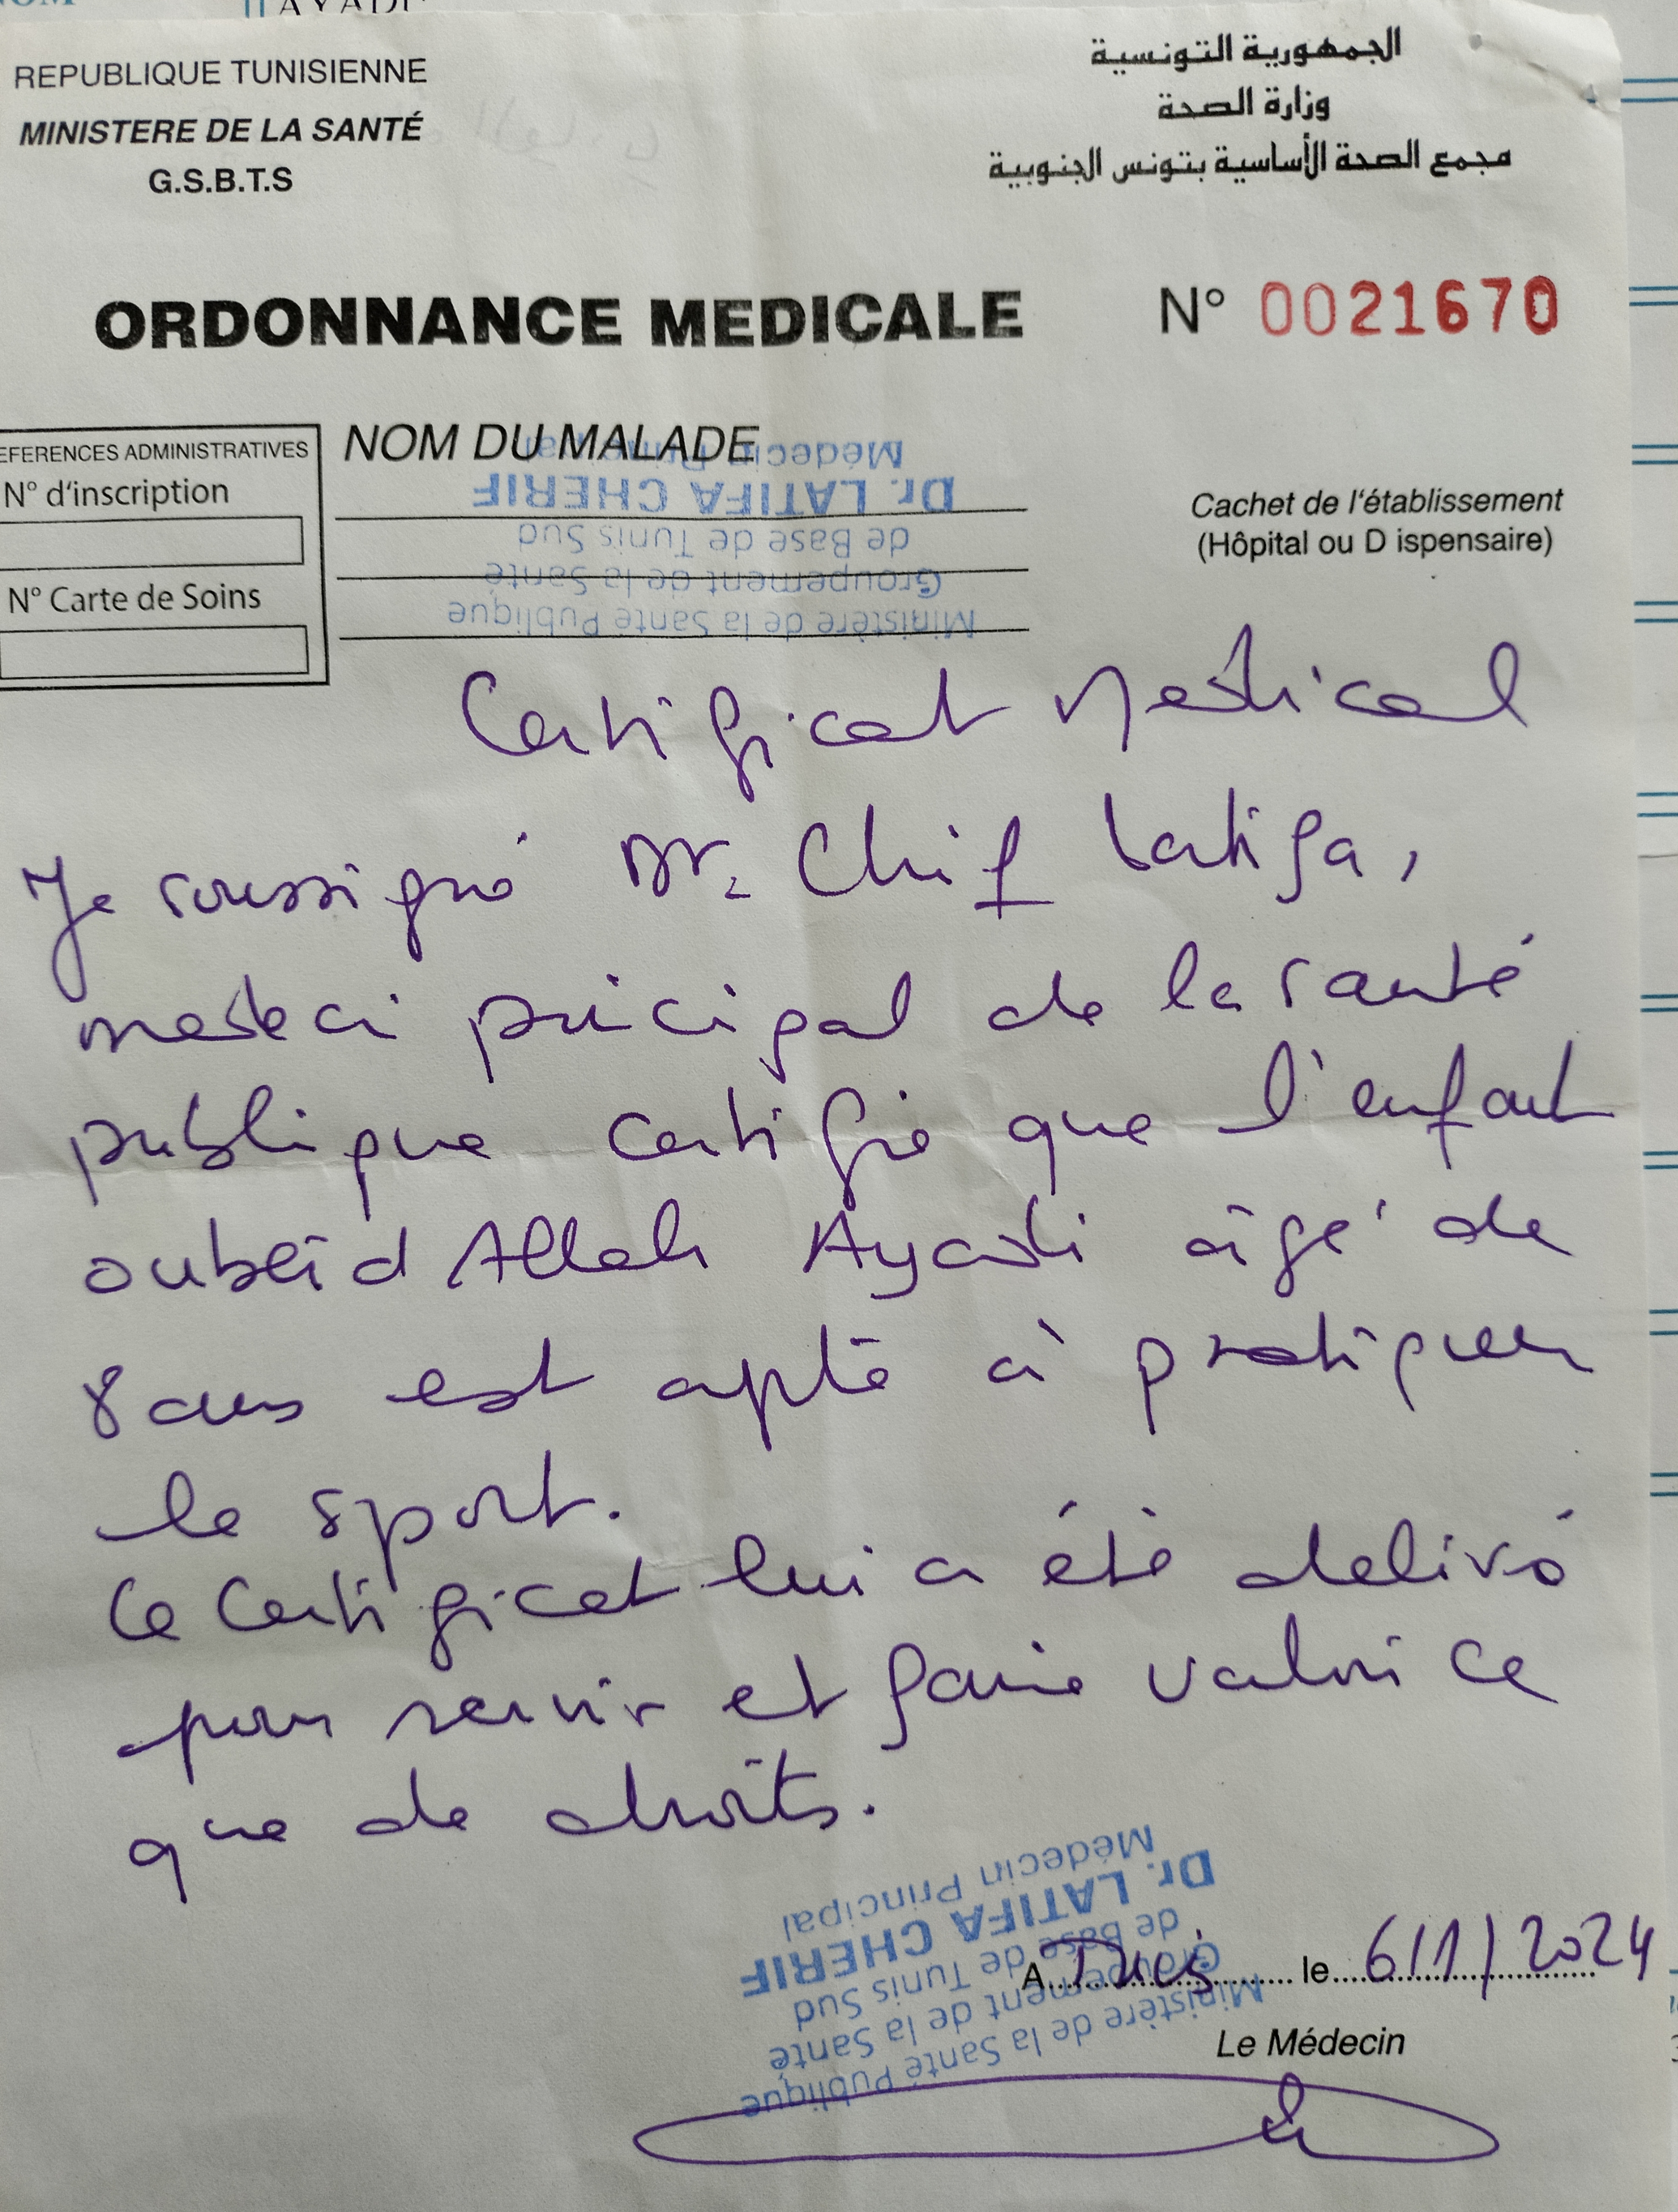 AYADI
REPUBLIQUE TUNISIENNE
MINISTERE DE LA SANTÉ
G.S.B.T.S
الجمهورية التونسية
وزارة الصحة
مجمع الصحة الأساسية بتونس الجنوبية
ORDONNANCE MEDICALE
N° 0021670
EFERENCES ADMINISTRATIVES
N° d'inscription
N° Carte de Soins
NOM DU MALADE
Ministère de la Santé Publique
Groupement de la Santé
de Base de Tunis Sud
Dr. LATIFA CHERIF
Médecin Principal
Cachet de l'établissement
(Hôpital ou D ispensaire)
Certificat Medical
Je soussigné Dr. Chrif Latifa,
medeci pricipal de la santé
publique certifie que l'enfant
oubeid Allah Ayadi âgé de
8 ans est apte à pratiquer
le sport.
Ce Certificat lui a été delivré
pour servir et faire valoir ce
que de droits.
Ministère de la Santé Publique
Groupement de la Santé
de Base de Tunis Sud
Dr. LATIFA CHERIF
Médecin Principal
A Tunis le 6/1/2024
Le Médecin